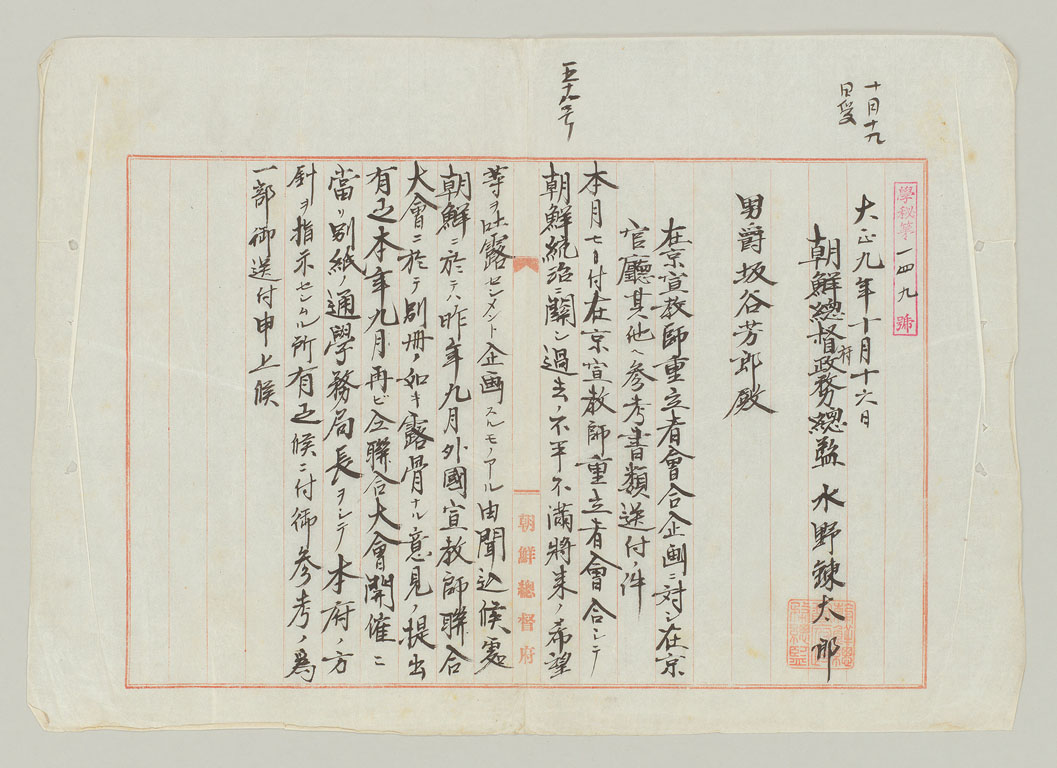 十月十九
日受
五十八号
學秘第一四九號
大正九年十月十六日
朝鮮總督府政務總監 水野錬太郎
男爵 坂谷芳郎殿
在京宣教師重立者會合企画ニ対シ在京
官廳其他ヘ参考書類送付ノ件
本月七日付在京宣教師重立者會合シテ
朝鮮統治ニ關シ過去ノ不平不滿將来ノ希望
等ヲ吐露センメント企画スルモノアル由聞込候處
朝鮮ニ於テハ昨年九月外國宣教師聯合
大會ニ於テ別冊ノ如キ露骨ナル意見ノ提出
有之本年九月再ビ仝聯合大會開催ニ
當リ別紙ノ通學務局長ヲシテ本府ノ方
針ヲ指示セシムル所有之候ニ付御参考ノ為
一部御送付申上候
朝鮮總督府